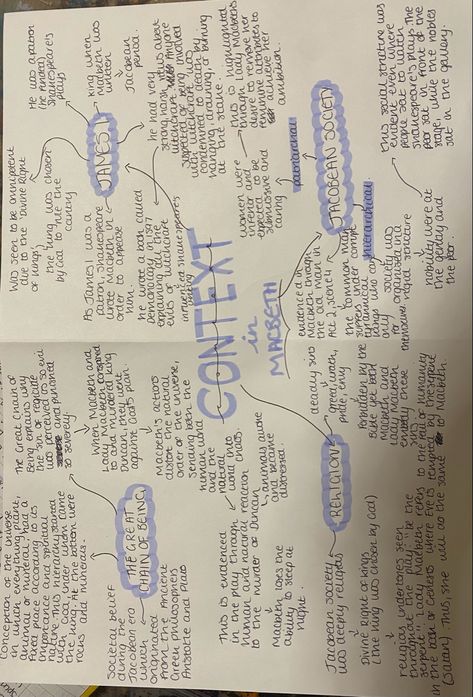 CONTEXT
in
MACBETH
JAMES I
He was a patron
(he funded)
Shakespeare's
plays
King when
Macbeth was
written
Jacobean
period.
he had very
strong harsh views about
witchcraft. Anyone
suspected of being involved
with witchcraft was
condemned to death by
hanging, drowning or burning
at the stake.
was seen to be omnipotent
due to the Divine Right
of Kings
the king was chosen
by God to rule the
country
As James I was a
patron, Shakespeare
wrote Macbeth in
order to appease
him.
he wrote a book called
Demonology in 1597
explaining about the
evils of witchcraft
influenced Shakespeare's
writing
JACOBEAN SOCIETY
patriarchal
women were
inferior and
expected to be
submissive and
caring
this is highlighted
through Lady Macbeth's
desire to remove her
feminine attributes to
achieve her
ambition.
hierarchical
society was
organised in a
rigid structure
nobility were at
the top, then
the gentry and
the poor.
this social structure was
evident even where
people sat to watch
Shakespeare's plays. The
poor sat in front of the
stage, while the nobles
sat in the gallery.
evidenced in
Macbeth through
the old man in
Act 2, scene 4
the common man
suffers under
tyrannical
kings who
only
themselves
THE GREAT
CHAIN OF BEING
Societal belief
during the
Jacobean era
which
originated
from the Ancient
Greek philosophers
Aristotle and Plato
Conception of the universe
in which everything: plant,
animal or mineral had a
fixed place according to its
importance and spiritual
nature. This hierarchy started
with God, under whom came
the king. At the bottom were
rocks and minerals.
The Great Chain of
Being explains why
the sin of regicide
was perceived as so evil
and punished
so severely
When Macbeth and
Lady Macbeth conspired
to murder King
Duncan, they went
against God's plan.
Macbeth's actions
disrupt the natural
order of the universe,
sending both the
human world
and the
natural
world into
chaos.
This is evidenced
in the play through
human and natural reaction
to the murder of Duncan
animals awake
and become
distressed.
Macbeth loses the
ability to sleep at
night.
RELIGION
Jacobean society
was deeply religious
Divine Right of Kings
(the king was chosen by God)
deadly sins
greed, wrath,
pride, envy
forbidden by the
Bible yet both
Macbeth and
Lady Macbeth
embody these
sins
religious undertones seen
throughout the play: 'be the
serpent' Lady Macbeth refers to the Fall of Humanity
in the book of Genesis where Eve is tempted by the serpent
(Satan). Thus, she will do the same to Macbeth.